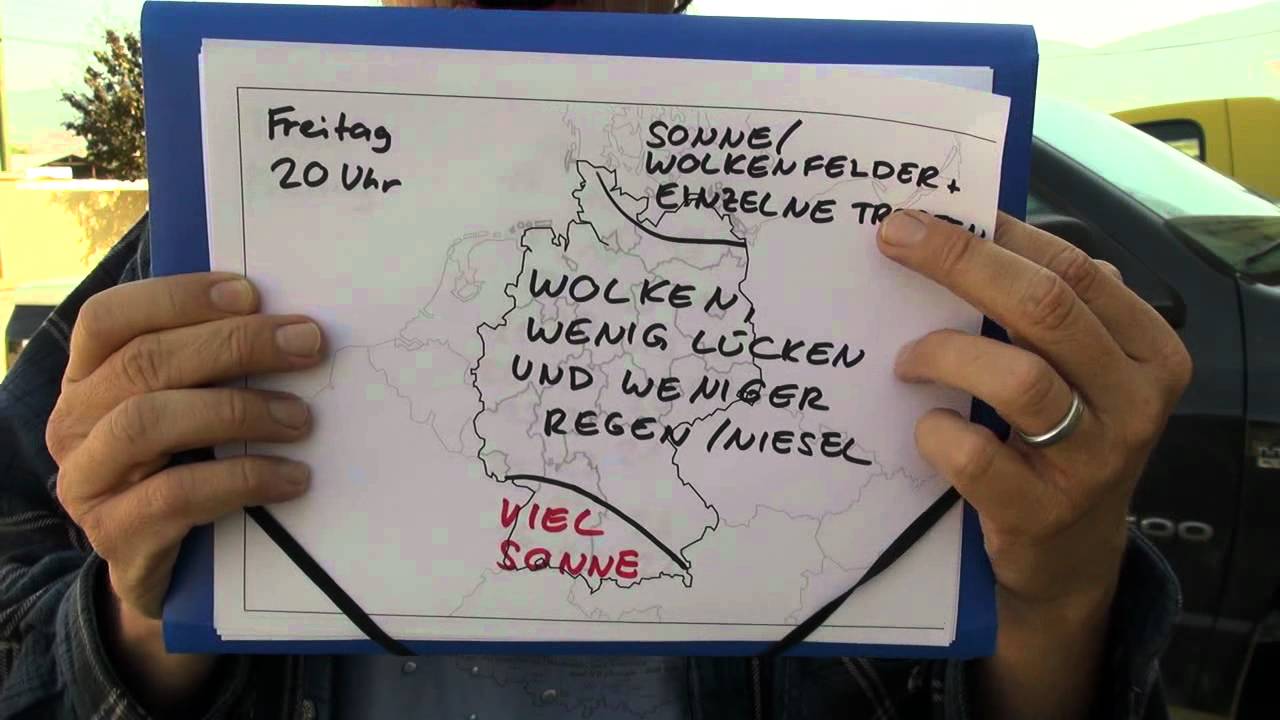 Freitag
20 Uhr
SONNE/
WOLKENFELDER+
EINZELNE
WOLKEN,
WENIG LÜCKEN
UND WENIGER
REGEN/NIESEL
VIEL
SONNE